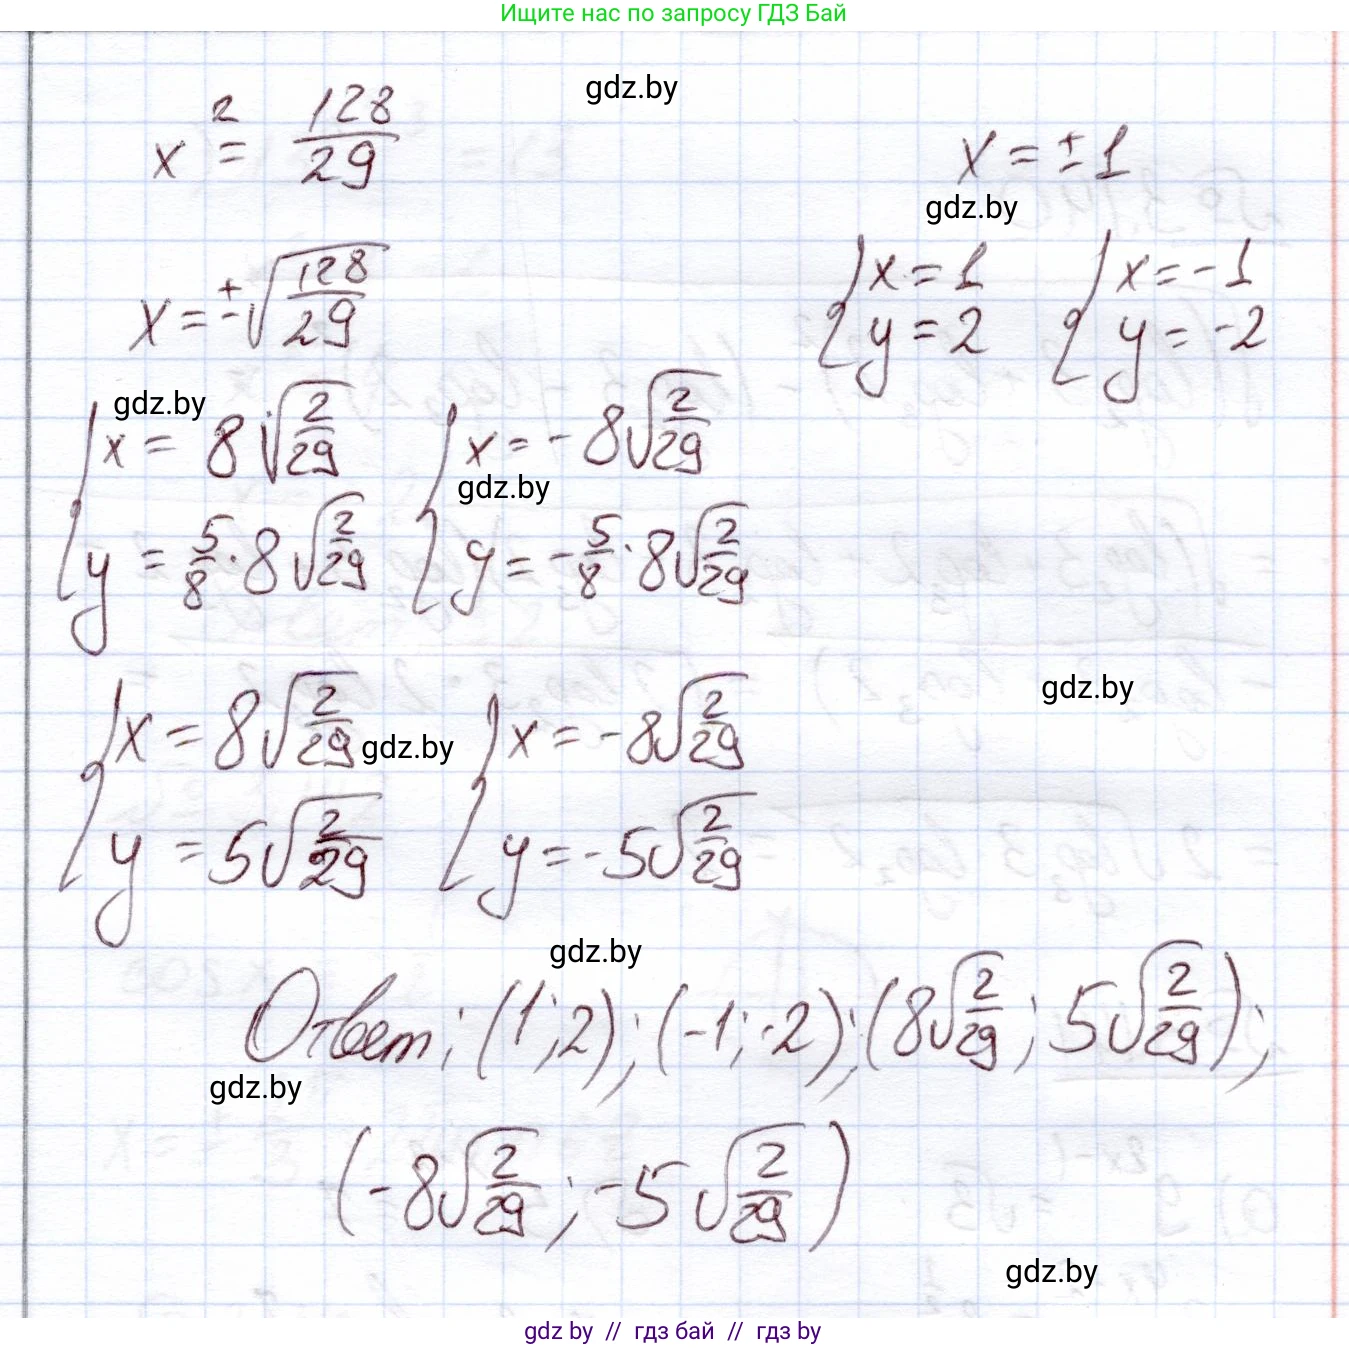 Ищите нас по запросу ГДЗ Бай
gdz.by
x² = 128/29
x = ±1
gdz.by
x = ±√(128/29)
{ x = 1
y = 2
{ x = -1
y = -2
gdz.by
{ x = 8√(2/29)
y = 5/8 · 8√(2/29)
{ x = -8√(2/29)
gdz.by
y = -5/8 · 8√(2/29)
gdz.by
{ x = 8√(2/29)
y = 5√(2/29)
gdz.by
{ x = -8√(2/29)
y = -5√(2/29)
gdz.by
Ответ: (1; 2); (-1; -2); (8√(2/29); 5√(2/29));
gdz.by
(-8√(2/29); -5√(2/29))
gdz.by
gdz by // гдз бай // гдз by